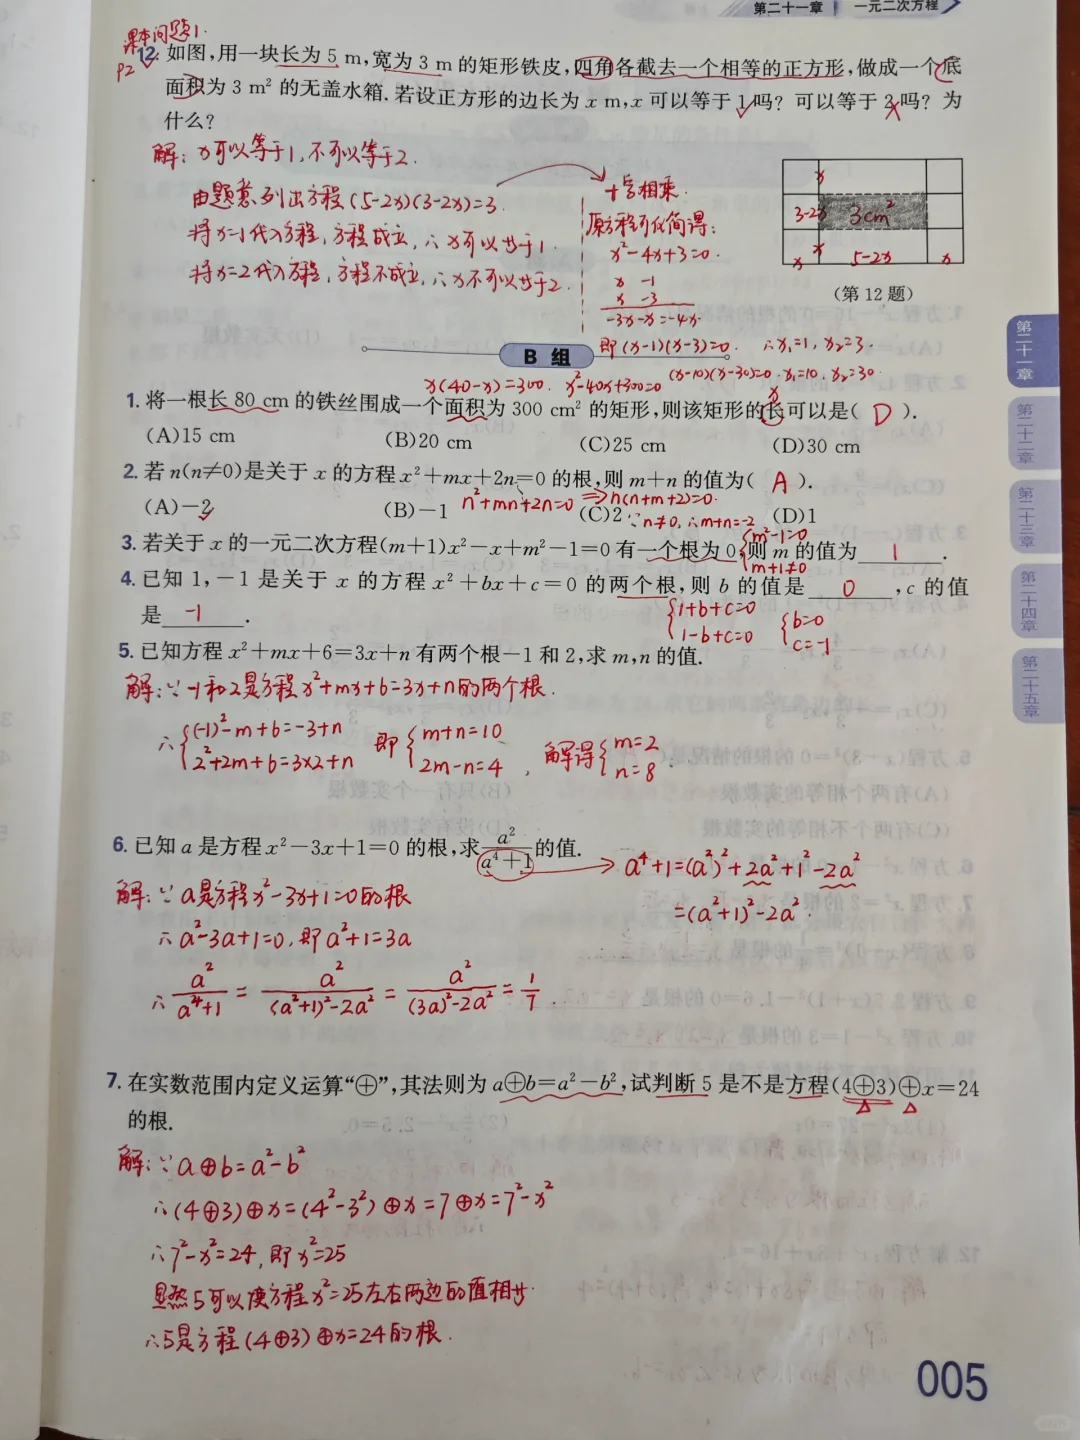 第二十一章 一元二次方程
课本问题1.
P2
12. 如图,用一块长为 5 m,宽为 3 m 的矩形铁皮,四角各截去一个相等的正方形,做成一个底
面积为 3 m² 的无盖水箱. 若设正方形的边长为 x m,x 可以等于 1 吗? 可以等于 2 吗? 为
什么?
解: x可以等于1, 不可以等于2.
由题意列出方程 (5-2x)(3-2x)=3.
将x=1代入方程, 方程成立, ∴x可以等于1.
将x=2代入方程, 方程不成立, ∴x不可以等于2.
十字相乘.
原方程可化简得:
x²-4x+3=0.
x -1
x -3
-3x-x=-4x.
即(x-1)(x-3)=0. ∴x₁=1, x₂=3.
x
3-2x 3cm²
x
x 5-2x x
(第 12 题)
B 组
x(40-x)=300. x²-40x+300=0 (x-10)(x-30)=0. x₁=10, x₂=30.
x
1. 将一根长 80 cm 的铁丝围成一个面积为 300 cm² 的矩形,则该矩形的长可以是( D ).
(A)15 cm (B)20 cm (C)25 cm (D)30 cm
2. 若 n(n≠0)是关于 x 的方程 x²+mx+2n=0 的根,则 m+n 的值为( A ).
(A)-2 (B)-1 (C)2 (D)1
n²+mn+2n=0 ⇒ n(n+m+2)=0.
∵n≠0, ∴m+n=-2
3. 若关于 x 的一元二次方程(m+1)x²-x+m²-1=0 有一个根为 0,则 m 的值为 1 .
m²-1=0
m+1≠0
4. 已知 1,-1 是关于 x 的方程 x²+bx+c=0 的两个根,则 b 的值是 0 ,c 的值
是 -1 .
{1+b+c=0 {b=0
1-b+c=0 c=-1
5. 已知方程 x²+mx+6=3x+n 有两个根-1 和 2,求 m,n 的值.
解: ∵-1和2是方程x²+mx+6=3x+n的两个根.
∴{(-1)²-m+6=-3+n 即{m+n=10 , 解得{m=2
2²+2m+6=3×2+n 2m-n=4 n=8.
6. 已知 a 是方程 x²-3x+1=0 的根,求 a²/(a⁴+1) 的值.
a⁴+1=(a²)²+2a²+1²-2a²
=(a²+1)²-2a².
解: ∵a是方程x²-3x+1=0的根
∴a²-3a+1=0, 即a²+1=3a
∴ a²/(a⁴+1) = a²/((a²+1)²-2a²) = a²/((3a)²-2a²) = 1/7 .
7. 在实数范围内定义运算“⊕”,其法则为 a⊕b=a²-b²,试判断 5 是不是方程(4⊕3)⊕x=24
的根.
解: ∵a⊕b=a²-b²
∴(4⊕3)⊕x=(4²-3²)⊕x=7⊕x=7²-x²
∴7²-x²=24, 即x²=25
显然5可以使方程x²=25左右两边的值相等.
∴5是方程(4⊕3)⊕x=24的根.
第二十一章
第二十二章
第二十三章
第二十四章
第二十五章
005